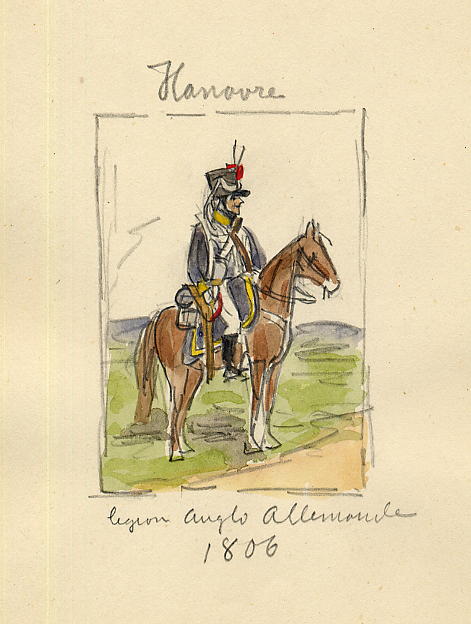 Hanovre
legion Anglo Allemande
1806